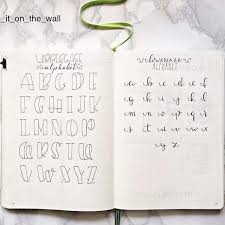 _it_on_the_wall
UPPERCASE
alphabet
A B C D E
F G H I J K
L M N O P
Q R S T U
V W X Y Z
lowercase
ALPHABET
a b c d e f
g h i j k l
m n o p q r
s t u v w x
y z